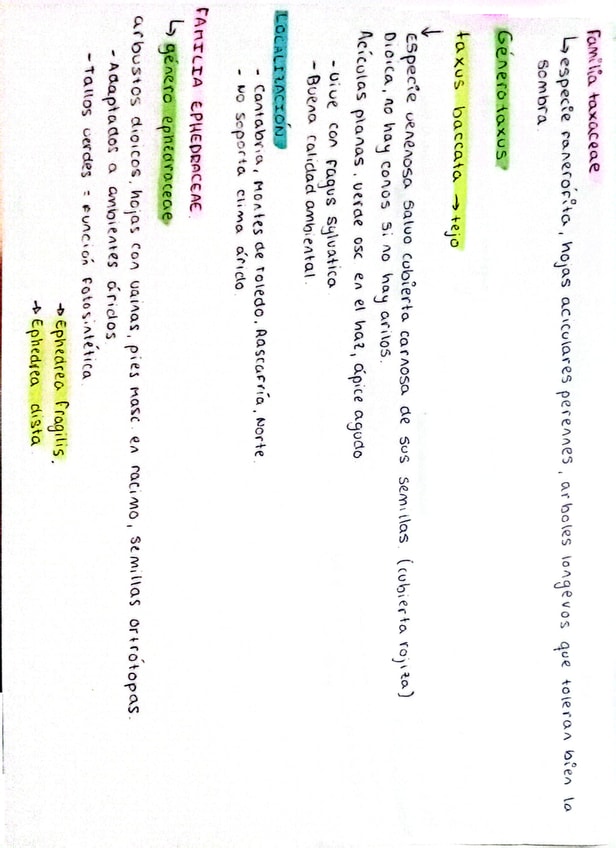 Familia taxaceae
↳ especie fanerófita, hojas aciculares perennes, arboles longevos que toleran bien la
sombra.
Género taxus
taxus baccata → tejo
↓
Especie venenosa salvo cubierta carnosa de sus semillas. (cubierta rojiza)
Dioica, no hay conos si no hay arilos.
Acículas planas, verde osc en el haz, ápice agudo
- Vive con fagus sylvatica.
- Buena calidad ambiental.
LOCALIZACIÓN
- Cantabria, Montes de Toledo, Rascafría, Norte.
- No soporta clima árido.
FAMILIA EPHEDRACEAE.
↳ género ephedraceae
arbustos dioicos, hojas con vainas, pies masc. en racimo, semillas ortrótopas.
- Adaptados a ambientes áridos
- Tallos verdes = Función fotosintética.
→ Ephedrea fragilis.
→ Ephedrea dista